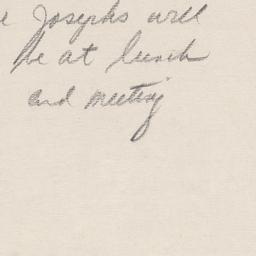 Josephs will
be at lunch
and meeting